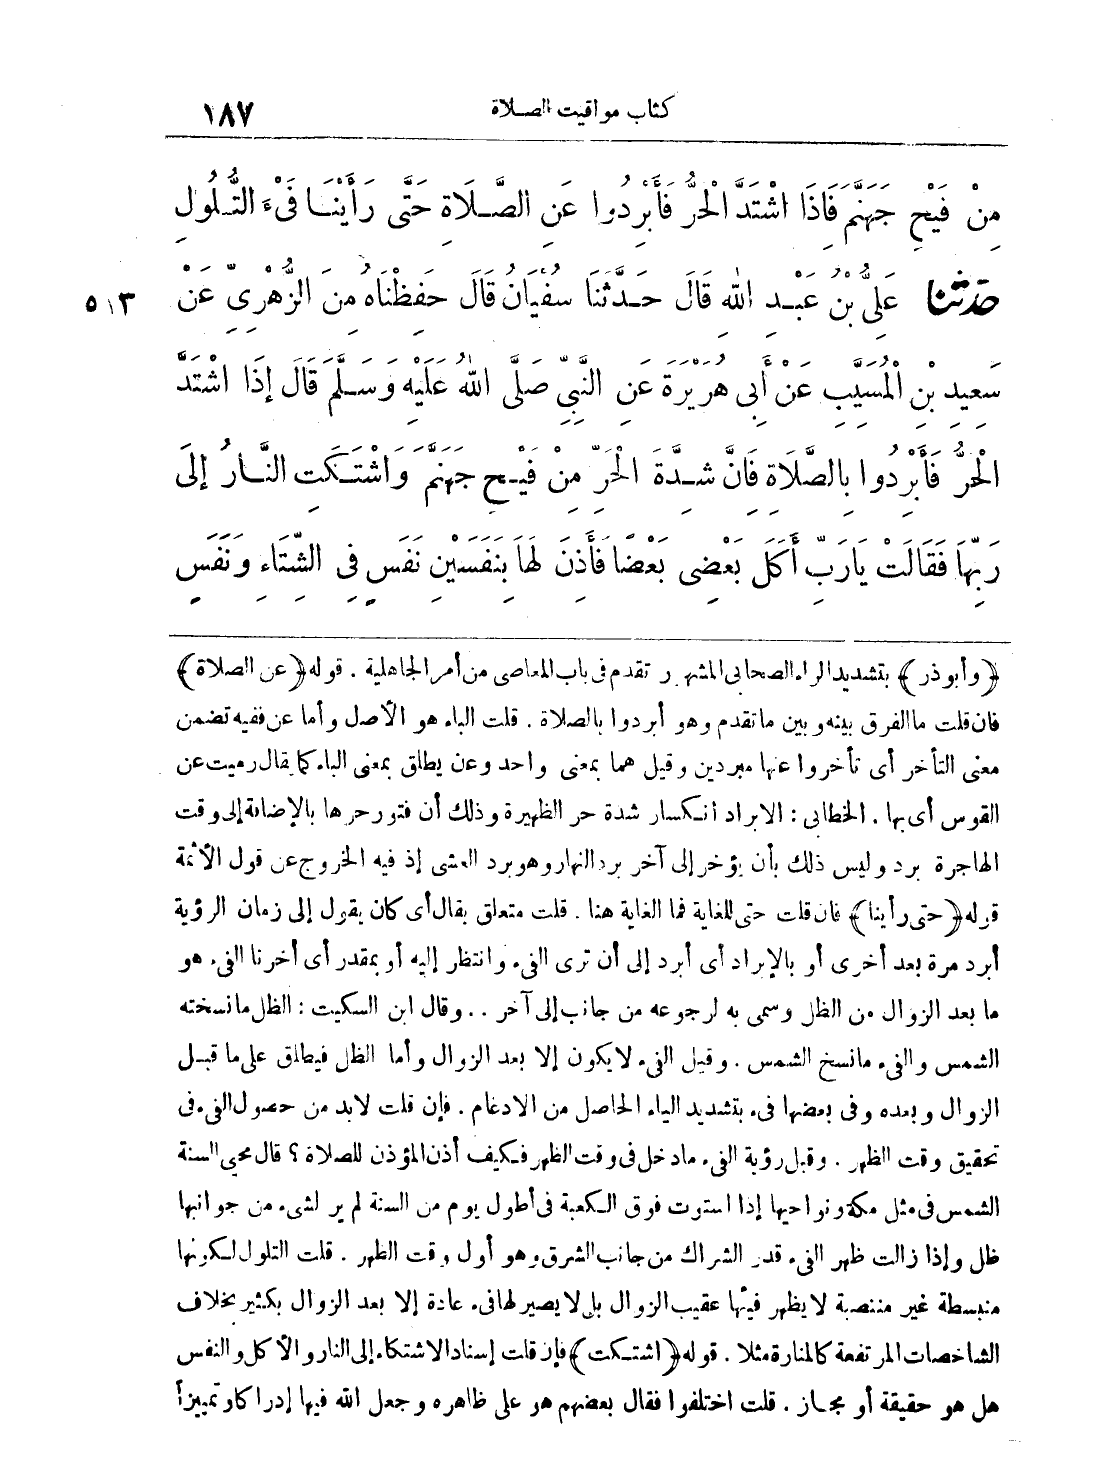 كتاب مواقيت الصلاة ١٨٧
مِنْ فَيْحِ جَهَنَّمَ فَاذَا اشْتَدَّ الْحَرُّ فَأَبْرِدُوا عَنِ الصَّلَاةِ حَتَّى رَأَيْنَا فَىْءَ التُّلُولِ
حَدَّثَنَا عَلِىُّ بْنُ عَبْدِ اللهِ قَالَ حَدَّثَنَا سُفْيَانُ قَالَ حَفِظْنَاهُ مِنَ الزُّهْرِىِّ عَنْ ٥١٣
سَعِيدِ بْنِ الْمُسَيَّبِ عَنْ أَبِى هُرَيْرَةَ عَنِ النَّبِىِّ صَلَّى اللهُ عَلَيْهِ وَسَلَّمَ قَالَ إِذَا اشْتَدَّ
الْحَرُّ فَأَبْرِدُوا بِالصَّلَاةِ فَانَّ شِدَّةَ الْحَرِّ مِنْ فَيْحِ جَهَنَّمَ وَاشْتَكَتِ النَّارُ إِلَى
رَبِّهَا فَقَالَتْ يَارَبِّ أَكَلَ بَعْضِى بَعْضًا فَأَذِنَ لَهَا بِنَفَسَيْنِ نَفَسٍ فِى الشِّتَاءِ وَنَفَسٍ
﴿وأبوذر﴾ بتشديد الراء الصحابى المشهور تقدم فى باب المعاصى من أمر الجاهلية . قوله ﴿عن الصلاة﴾
فان قلت ما الفرق بينه وبين ما تقدم وهو أبردوا بالصلاة . قلت الباء هو الأصل وأما عن ففيه تضمن
معنى التأخر أى تأخروا عنها مبردين وقيل هما بمعنى واحد وعن يطلق بمعنى الباء كما يقال رميت عن
القوس أى بها . الخطابى : الابراد انكسار شدة حر الظهيرة وذلك أن فتور حرها بالإضافة إلى وقت
الهاجرة برد وليس ذلك بأن يؤخر إلى آخر برد النهار وهو برد العشى إذ فيه الخروج عن قول الأئمة
قوله ﴿حتى رأينا﴾ فان قلت حتى للغاية فما الغاية هنا . قلت متعلق بقال أى كان يقول إلى زمان الرؤية
أبرد مرة بعد أخرى أو بالإبراد أى أبرد إلى أن ترى الفىء وانتظر إليه أو بمقدر أى أخرنا الفىء هو
ما بعد الزوال من الظل وسمى به لرجوعه من جانب إلى آخر . . وقال ابن السكيت : الظل ما نسخته
الشمس والفىء ما نسخ الشمس . وقيل الفىء لا يكون إلا بعد الزوال وأما الظل فيطلق على ما قبل
الزوال وبعده وفى بعضها فىء بتشديد الياء الحاصل من الادغام . فإن قلت لابد من حصول الفىء فى
تحقيق وقت الظهر . وقبل رؤية الفىء ما دخل فى وقت الظهر فكيف أذن المؤذن للصلاة ؟ قال محيى السنة
الشمس فى مثل مكة ونواحيها إذا استوت فوق الكعبة فى أطول يوم من السنة لم ير لشىء من جوانبها
ظل وإذا زالت ظهر الفىء قدر الشراك من جانب الشرق وهو أول وقت الظهر . قلت التلول لكونها
منبسطة غير منتصبة لا يظهر فيئها عقيب الزوال بل لا يصير لها فىء عادة إلا بعد الزوال بكثير بخلاف
الشاخصات المرتفعة كالمنارة مثلا . قوله ﴿اشتكت﴾ فإن قلت إسناد الاشتكاء إلى النار والأكل والنفس
هل هو حقيقة أو مجاز . قلت اختلفوا فقال بعضهم هو على ظاهره وجعل الله فيها إدراكا وتمييزاً